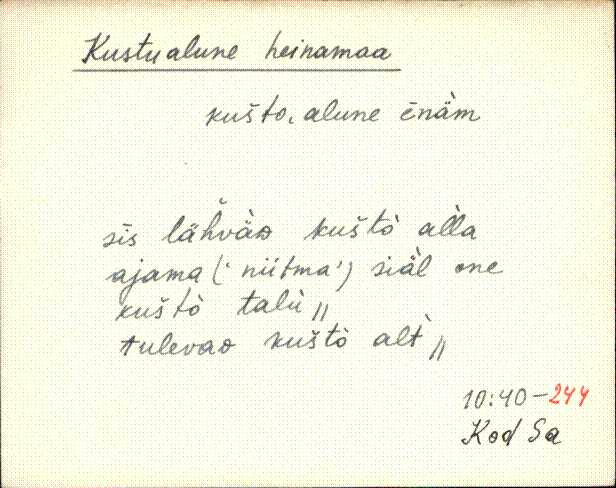 Kustualune heinamaa
kušto, alune ēnäm
sīs lähväD kuštò al̀la
ajama (' niitma') siäl one
kuštò talù,,
tulevaD kuštò alt̀,,
10:40-244
Kod Sa